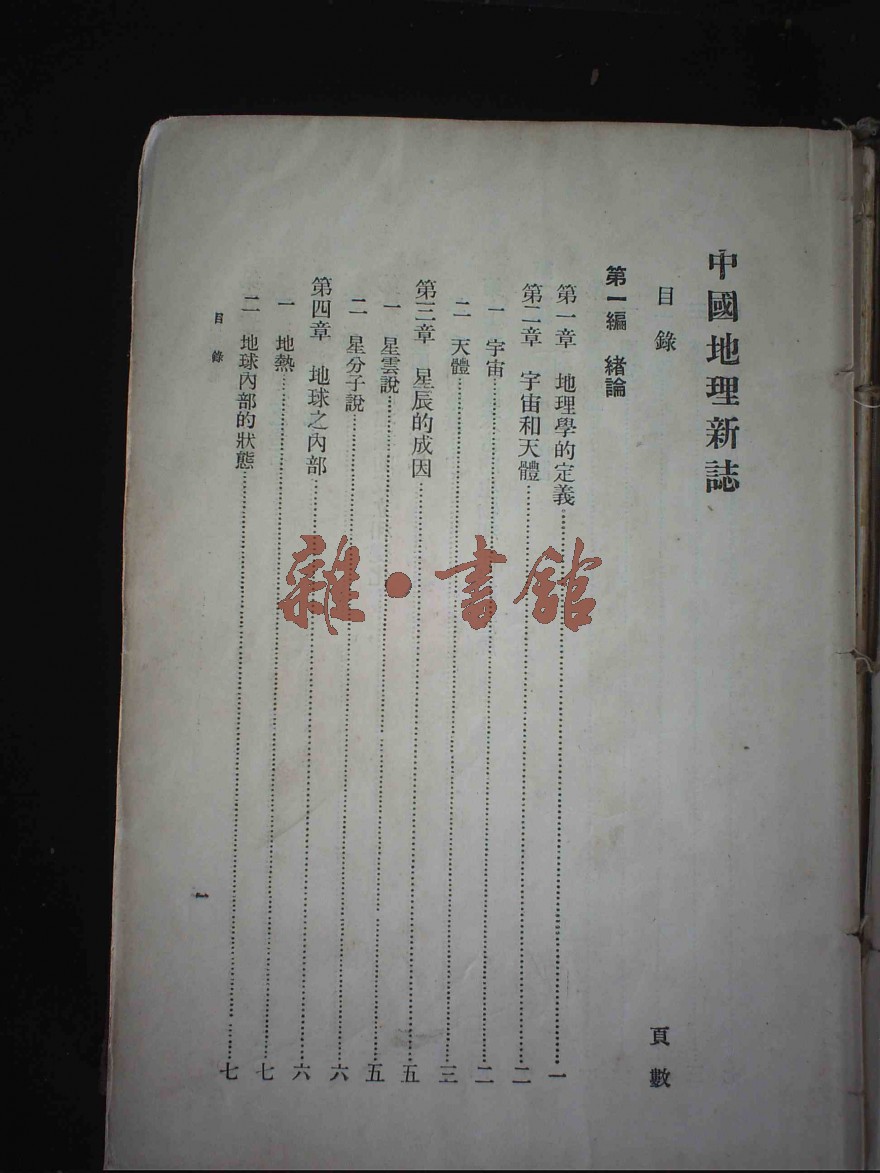 中國地理新誌
目錄 頁數
第一編 緒論
第一章 地理學的定義……一
第二章 宇宙和天體……二
一 宇宙……二
二 天體……三
第三章 星辰的成因……五
一 星雲說……五
二 星分子說……六
第四章 地球之內部……六
一 地熱……七
二 地球內部的狀態……七
目錄 一
雜·書館